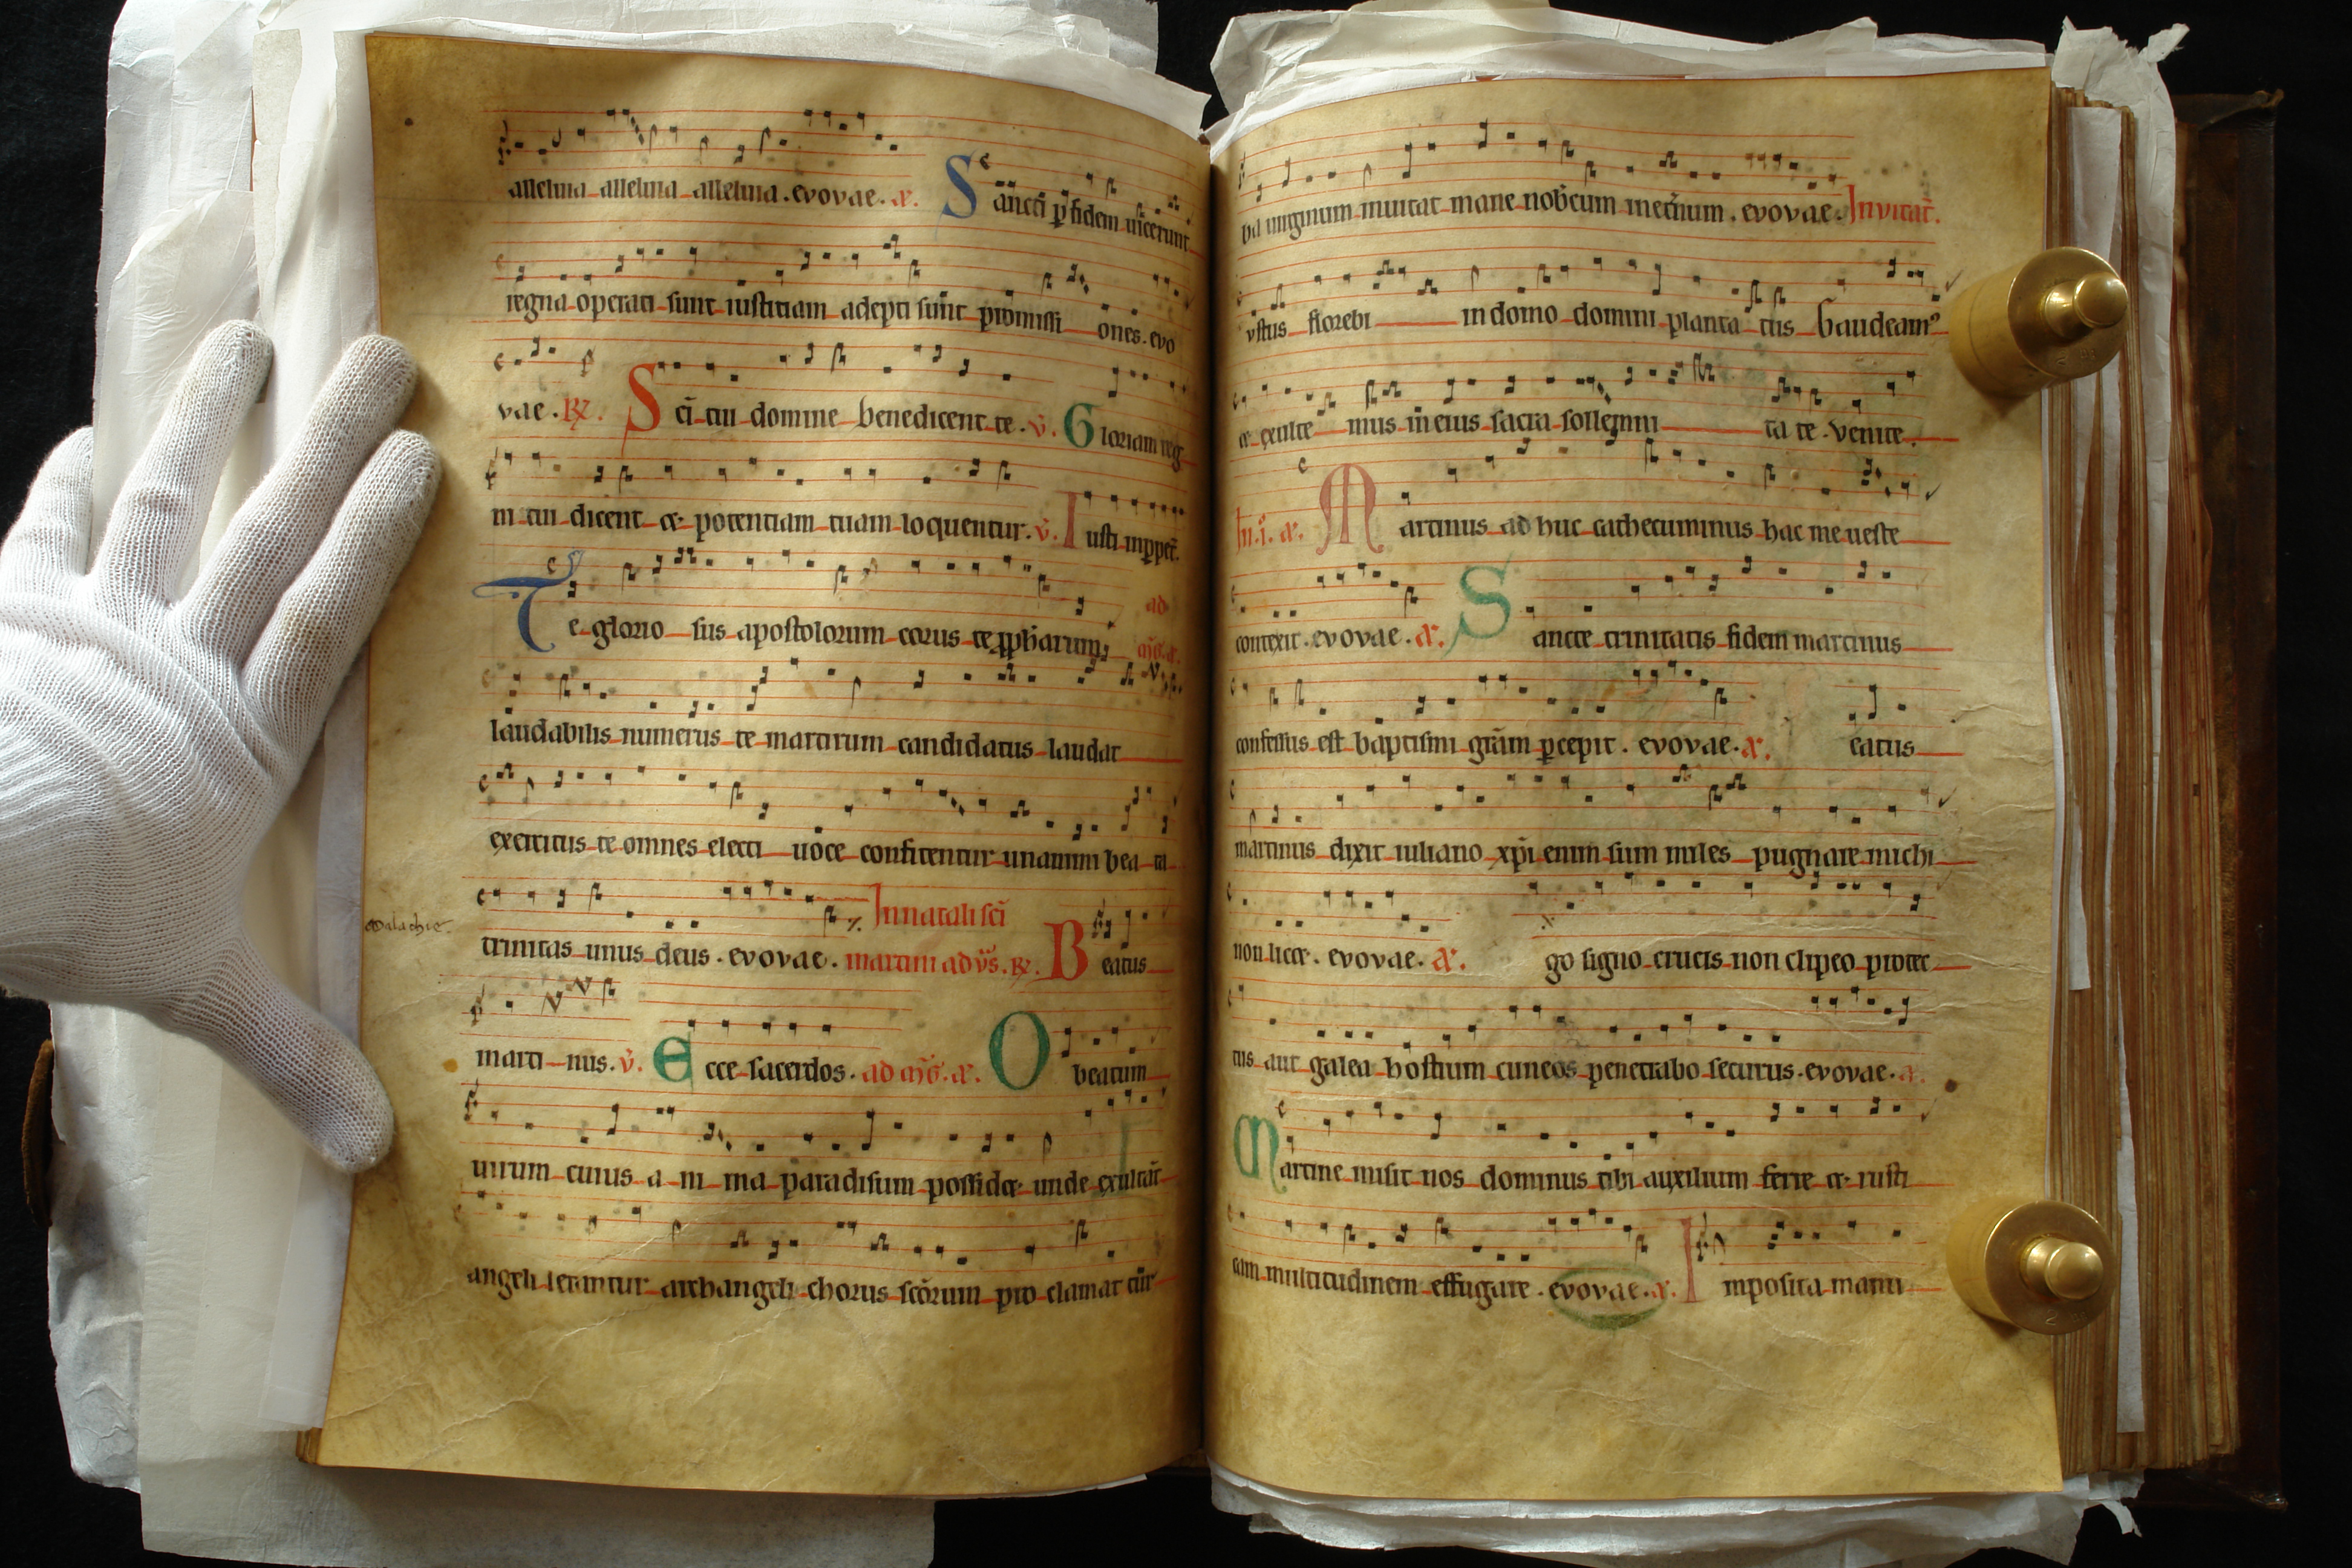 alleluia alleluia alleluia . evovae . a. Sancti p fidem uicerunt
regna operati sunt iustitiam adepti sunt promissi ones . evo
vae . R. Sci tui domine benedicent te . v. Gloriam reg
ni tui dicent et potentiam tuam loquentur . v. Iusti inppet.
ad
Te glorio sus apostolorum corus te pphetarum
laudabilis numerus te martirum candidatus laudat
exercitus te omnes electi uoce confitentur unanim bea ta
In natali sci
malachie.
trinitas unus deus . evovae . martini ad vs. R. Beatus
marti nus . v. Ecce sacerdos . ad mg. a. O beatum
uirum cuius a ni ma paradisum possidet unde exultat
angeli letantur archangeli chorus scorum pro clamat tur
ba uirginum inuitat mane nobcum inetnum . evovae . Invitat.
vstus florebi in domo domini planta tus Gaudeam9
et exulte mus in eius sacra sollemni ta te . Venite .
In .i. a. Martinus ad huc cathecuminus hac me ueste
contexit . evovae . a. Sancte trinitatis fidem martinus
confessus est baptismi gram pcepit . evovae . a. eatus
martinus dixit iuliano xpi enim sum miles pugnare michi
non licet . evovae . a. go signo crucis non clipeo protec
tus aut galea hostium cuneos penetrabo securus . evovae . a.
Martine misit nos dominus tibi auxilium ferre et rusti
cam multitudinem effugare . evovae . a. Imposita manu